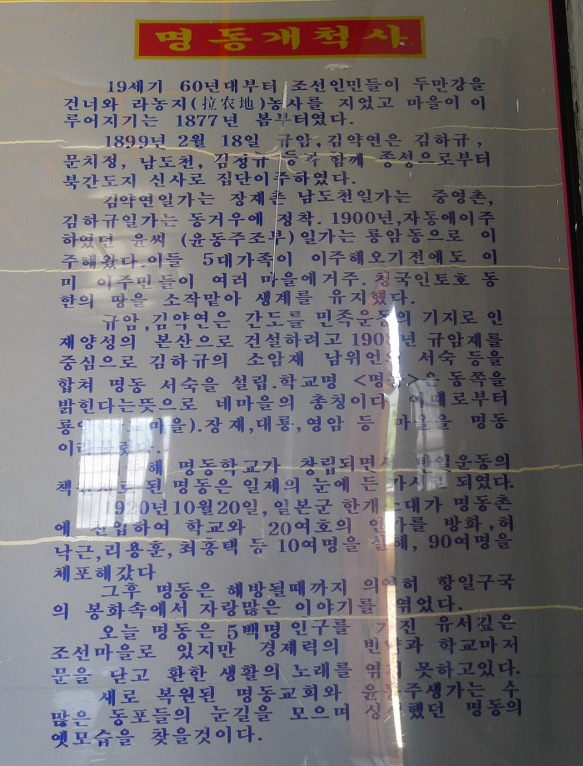 명동개척사
19세기 60년대부터 조선인민들이 두만강을
건너와 라농지(拉农地)농사를 지었고 마을이 이
루어지기는 1877년 봄부터였다.
1899년 2월 18일 규암,김약연은 김하규,
문치정, 남도천, 김정규 등과 함께 종성으로부터
북간도지 신사로 집단이주하였다.
김약연일가는 장재촌 남도천일가는 중영촌,
김하규일가는 동거우에 정착. 1900년,자동에이주
하였던 윤씨 (윤동주조부)일가는 룡암동으로 이
주해왔다.이들 5대가족이 이주해오기전에도 이
미 이주민들이 여러 마을에거주. 청국인토호 동
한의 땅을 소작맡아 생계를 유지했다.
규암,김약연은 간도를 민족운동의 기지로 인
재양성의 본산으로 건설하려고 년 규암재를
중심으로 김하규의 소암재 남위언의 서숙 등을
합쳐 명동 서숙을 설립.학교명 은 동쪽을
밝힌다는뜻으로 네마을의 총칭이다. 이때로부터
마을).장재,대룡,영암 등 마을을 명동

명동학교가 창립되면서 반일운동의
된 명동은 일제의 눈에 든 가시로 되였다.
1920년10월20일,일본군 한개 명동촌
에 진입하여 학교와 20여호의 방화,허
낙근,리용훈,최홍택 등 10여명을 살해, 90여명을
체포해갔다
그후 명동은 해방될때까지 의연히 항일구국
의 봉화속에서 자랑많은 이야기를 엮었다.
오늘 명동은 5백명인구를 가진 유서깊은
조선마을로 있지만 경제력의 빈약과 학교마저
문을 닫고 환한 생활의 노래를 엮지 못하고있다.
새로 복원된 명동교회와 윤동주생가는 수
많은 동포들의 눈길을 모으며 명동의
옛모습을 찾을것이다.